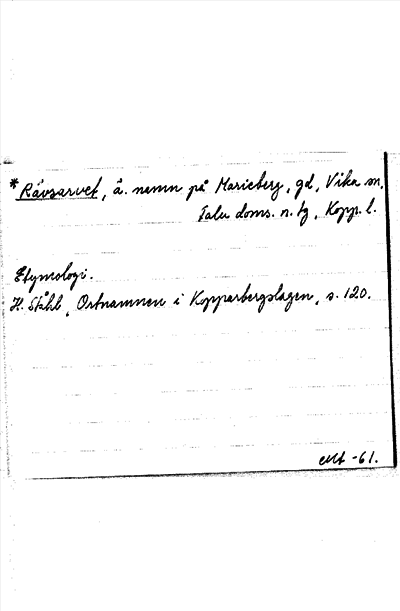 *Rävsarvet, ä. namn på Marieberg, gd, Vika sn,
Falu doms. n. tg, Kopp. l.
Etymologi.
H. Ståhl, Ortnamnen i Kopparbergslagen, s. 120.
-61.